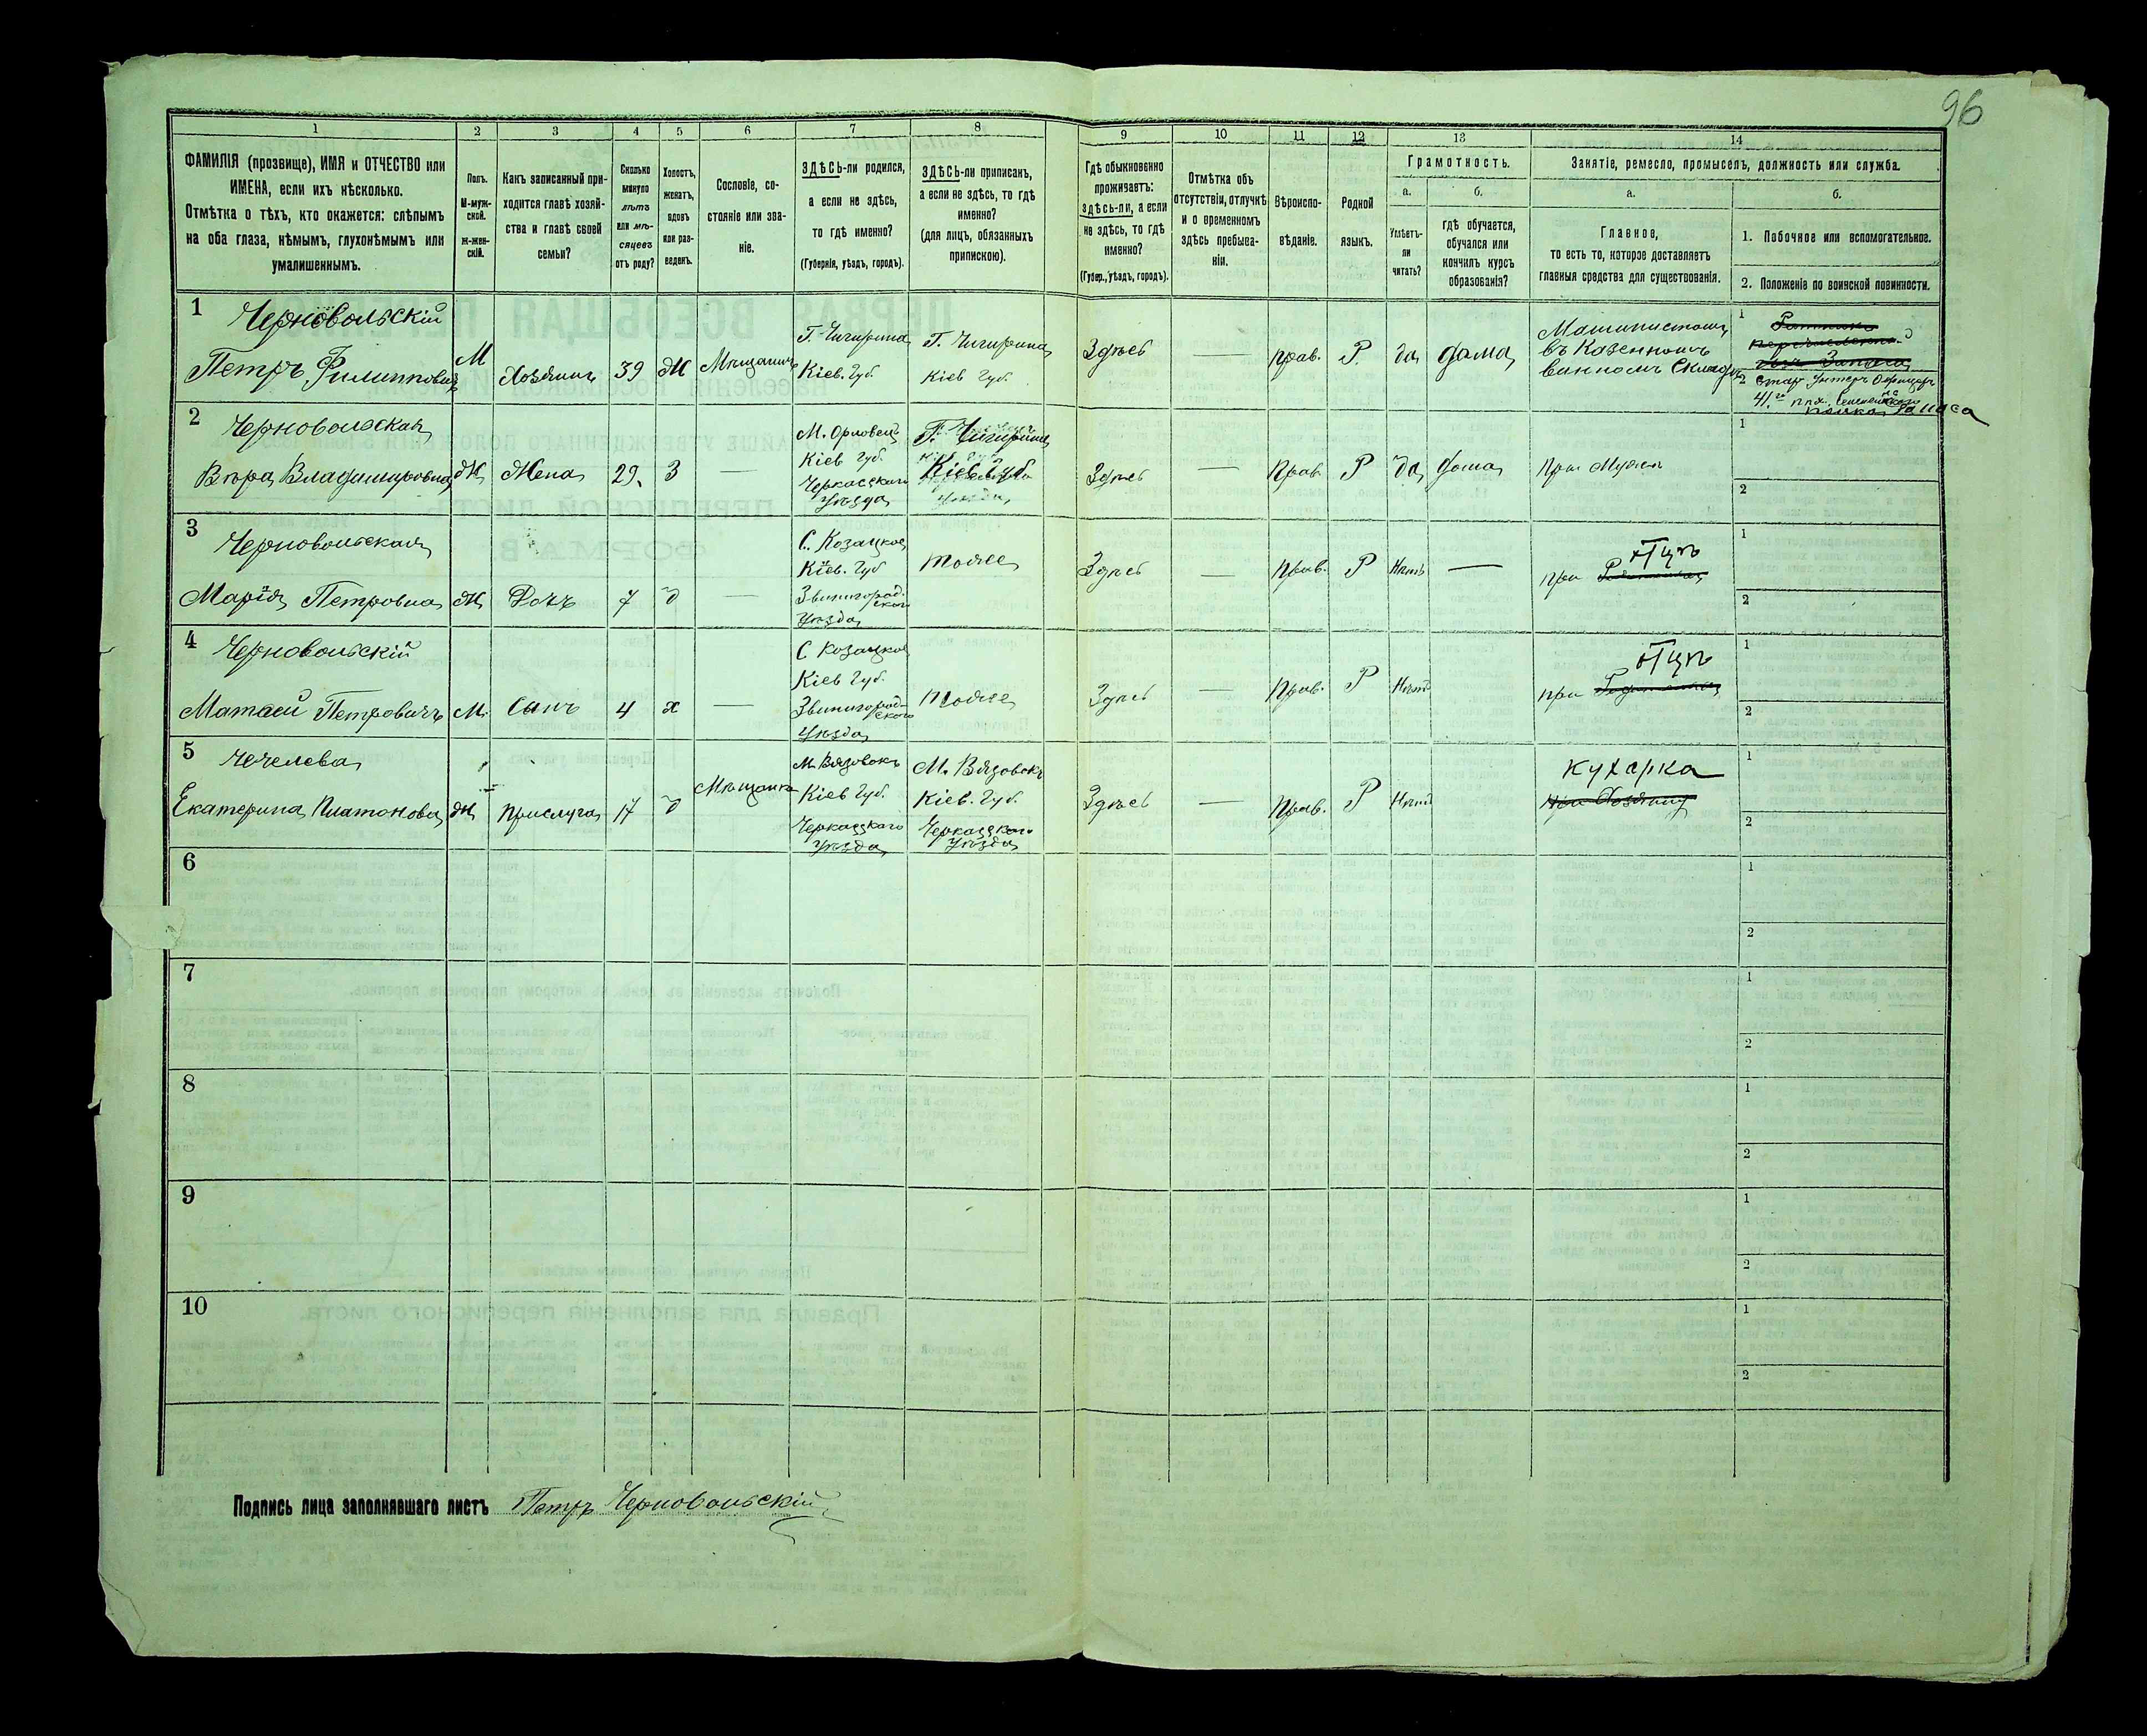 96
1
2
3
4
5
6
7
8
9
10
11
12
13
14
ФАМИЛІЯ (прозвище), ИМЯ и ОТЧЕСТВО или
ИМЕНА, если ихъ нѣсколько.
Отмѣтка о тѣхъ, кто окажется: слѣпымъ
на оба глаза, нѣмымъ, глухонѣмымъ или
умалишеннымъ.
Полъ.
М-муж-
ской.
ж-жен-
скій.
Какъ записанный при-
ходится главѣ хозяй-
ства и главѣ своей
семьи?
Сколько
минуло
лѣтъ
или мѣ-
сяцевъ
отъ роду?
Холостъ,
женатъ,
вдовъ
или раз-
веденъ.
Сословіе, со-
стояніе или зва-
ніе.
ЗДѢСЬ-ли родился,
а если не здѣсь,
то гдѣ именно?
(Губернія, уѣздъ, городъ).
ЗДѢСЬ-ли приписанъ,
а если не здѣсь, то гдѣ
именно?
(для лицъ, обязанныхъ
припискою).
Гдѣ обыкновенно
проживаетъ:
здѣсь-ли, а если
не здѣсь, то гдѣ
именно?
(Губер., уѣздъ, городъ).
Отмѣтка объ
отсутствіи, отлучкѣ
и о временномъ
здѣсь пребыва-
ніи.
Вѣроиспо-
вѣданіе.
Родной
языкъ.
Грамотность.
а.
Умѣетъ-
ли
читать?
б.
гдѣ обучается,
обучался или
кончилъ курсъ
образованія?
Занятіе, ремесло, промыселъ, должность или служба.
а.
Главное,
то есть то, которое доставляетъ
главныя средства для существованія.
б.
1. Побочное или вспомогательное.
2. Положеніе по воинской повинности.
1
Черновольскій
Петръ Филипповичъ
М
Хозяинъ
39
Ж
Мѣщанинъ
Г. Чигирина
Кіев. Губ.
Г. Чигирина
Кіев Губ.
Здѣсь
—
прав.
Р.
да
дома
Машинистомъ
въ Казенномъ
винномъ Складѣ
1
Запаса
2 Стар Унтеръ Офицеръ
41.го
Запаса
2
Черновольская
Вѣра Владимировна
Ж
Жена
29.
З
—
М. Орловец
Кіев Губ.
Черкасского
Уѣзда
Г. Чигирина
Кіев. Губ
Уѣзда
Здѣсь
—
Прав.
Р
да
дома
При Мужѣ
1
2
3
Черновольская
Марія Петровна
Ж
Дочь
7
д
—
С. Козацкое
Кіев. Губ
Звинигород-
ского
Уѣзда
тоже
Здѣсь
—
прав.
Р
Нѣтъ
—
отцѣ
при
1
2
4
Черновольскій
Матвей Петровичъ
М.
Сынъ
4
х
—
С. Козацкое
Кіев Губ.
Звинигород-
ского
Уѣзда
Тоже
Здѣсь
—
Прав.
Р
Нѣтъ
отцѣ
при
1
2
5
Чечелева
Екатерина Платонова
Ж
Прислуга
17
д
Мѣщанка
М. Вязовокъ
Кіев Губ.
Черкасского
Уѣзда
М. Вязовокъ
Кіев. Губ.
Черкасского
Уѣзда
Здѣсь
—
Прав.
Р
Нѣтъ
кухарка
При Хозяинѣ
1
2
6
1
2
7
1
2
8
1
2
9
1
2
10
1
2
Подпись лица заполнявшаго листъ Петръ Черновольскій